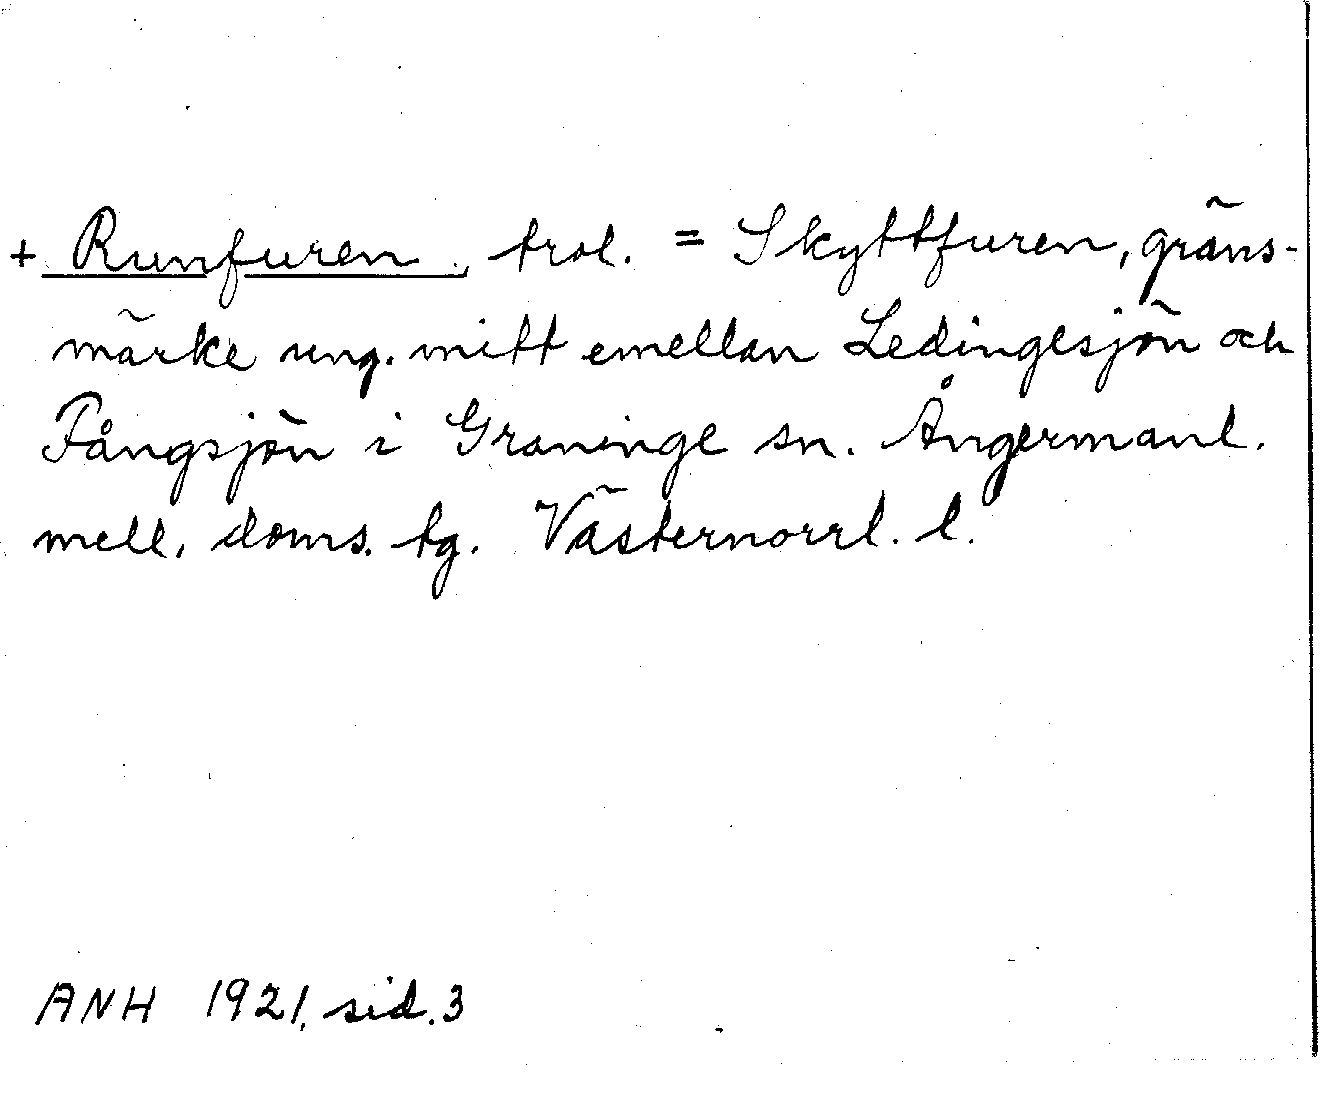 + Runfuren, trol. = Skyttfuren, gräns-
märke ung. mitt emellan Ledingesjön och
Fångsjön i Graninge sn. Ångermanl.
mell. doms. tg. Västernorrl. l.
ANH 1921, sid. 3